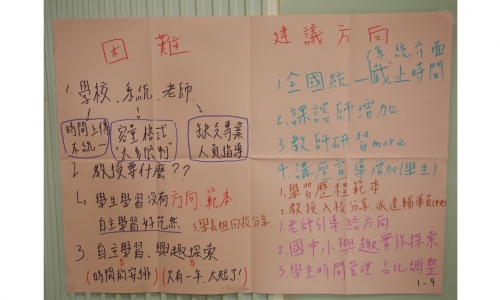 困難
1. 學校、系統、老師
時間上傳
不統一
容量格式
太多限制
缺乏專業
人員指導
2. 教授要什麼??
學生學習沒有方向、範本
自主學習好茫然
3. 自主學習、興趣探索
(時間的安排)
(只有一年,太短了!)
建議方向
(系統介面
1. 全國統一截止時間
2. 課諮師增加
3. 教師研習more
4. 講座宣導增加(學生)
1. 學習歷程範本
2. 教授入校分享、派遣輔導員
3. 學長姐回校分享
1. 老師引導給方向
2. 國中小興趣實作探索
3. 學生時間管理、占比調整
1-9